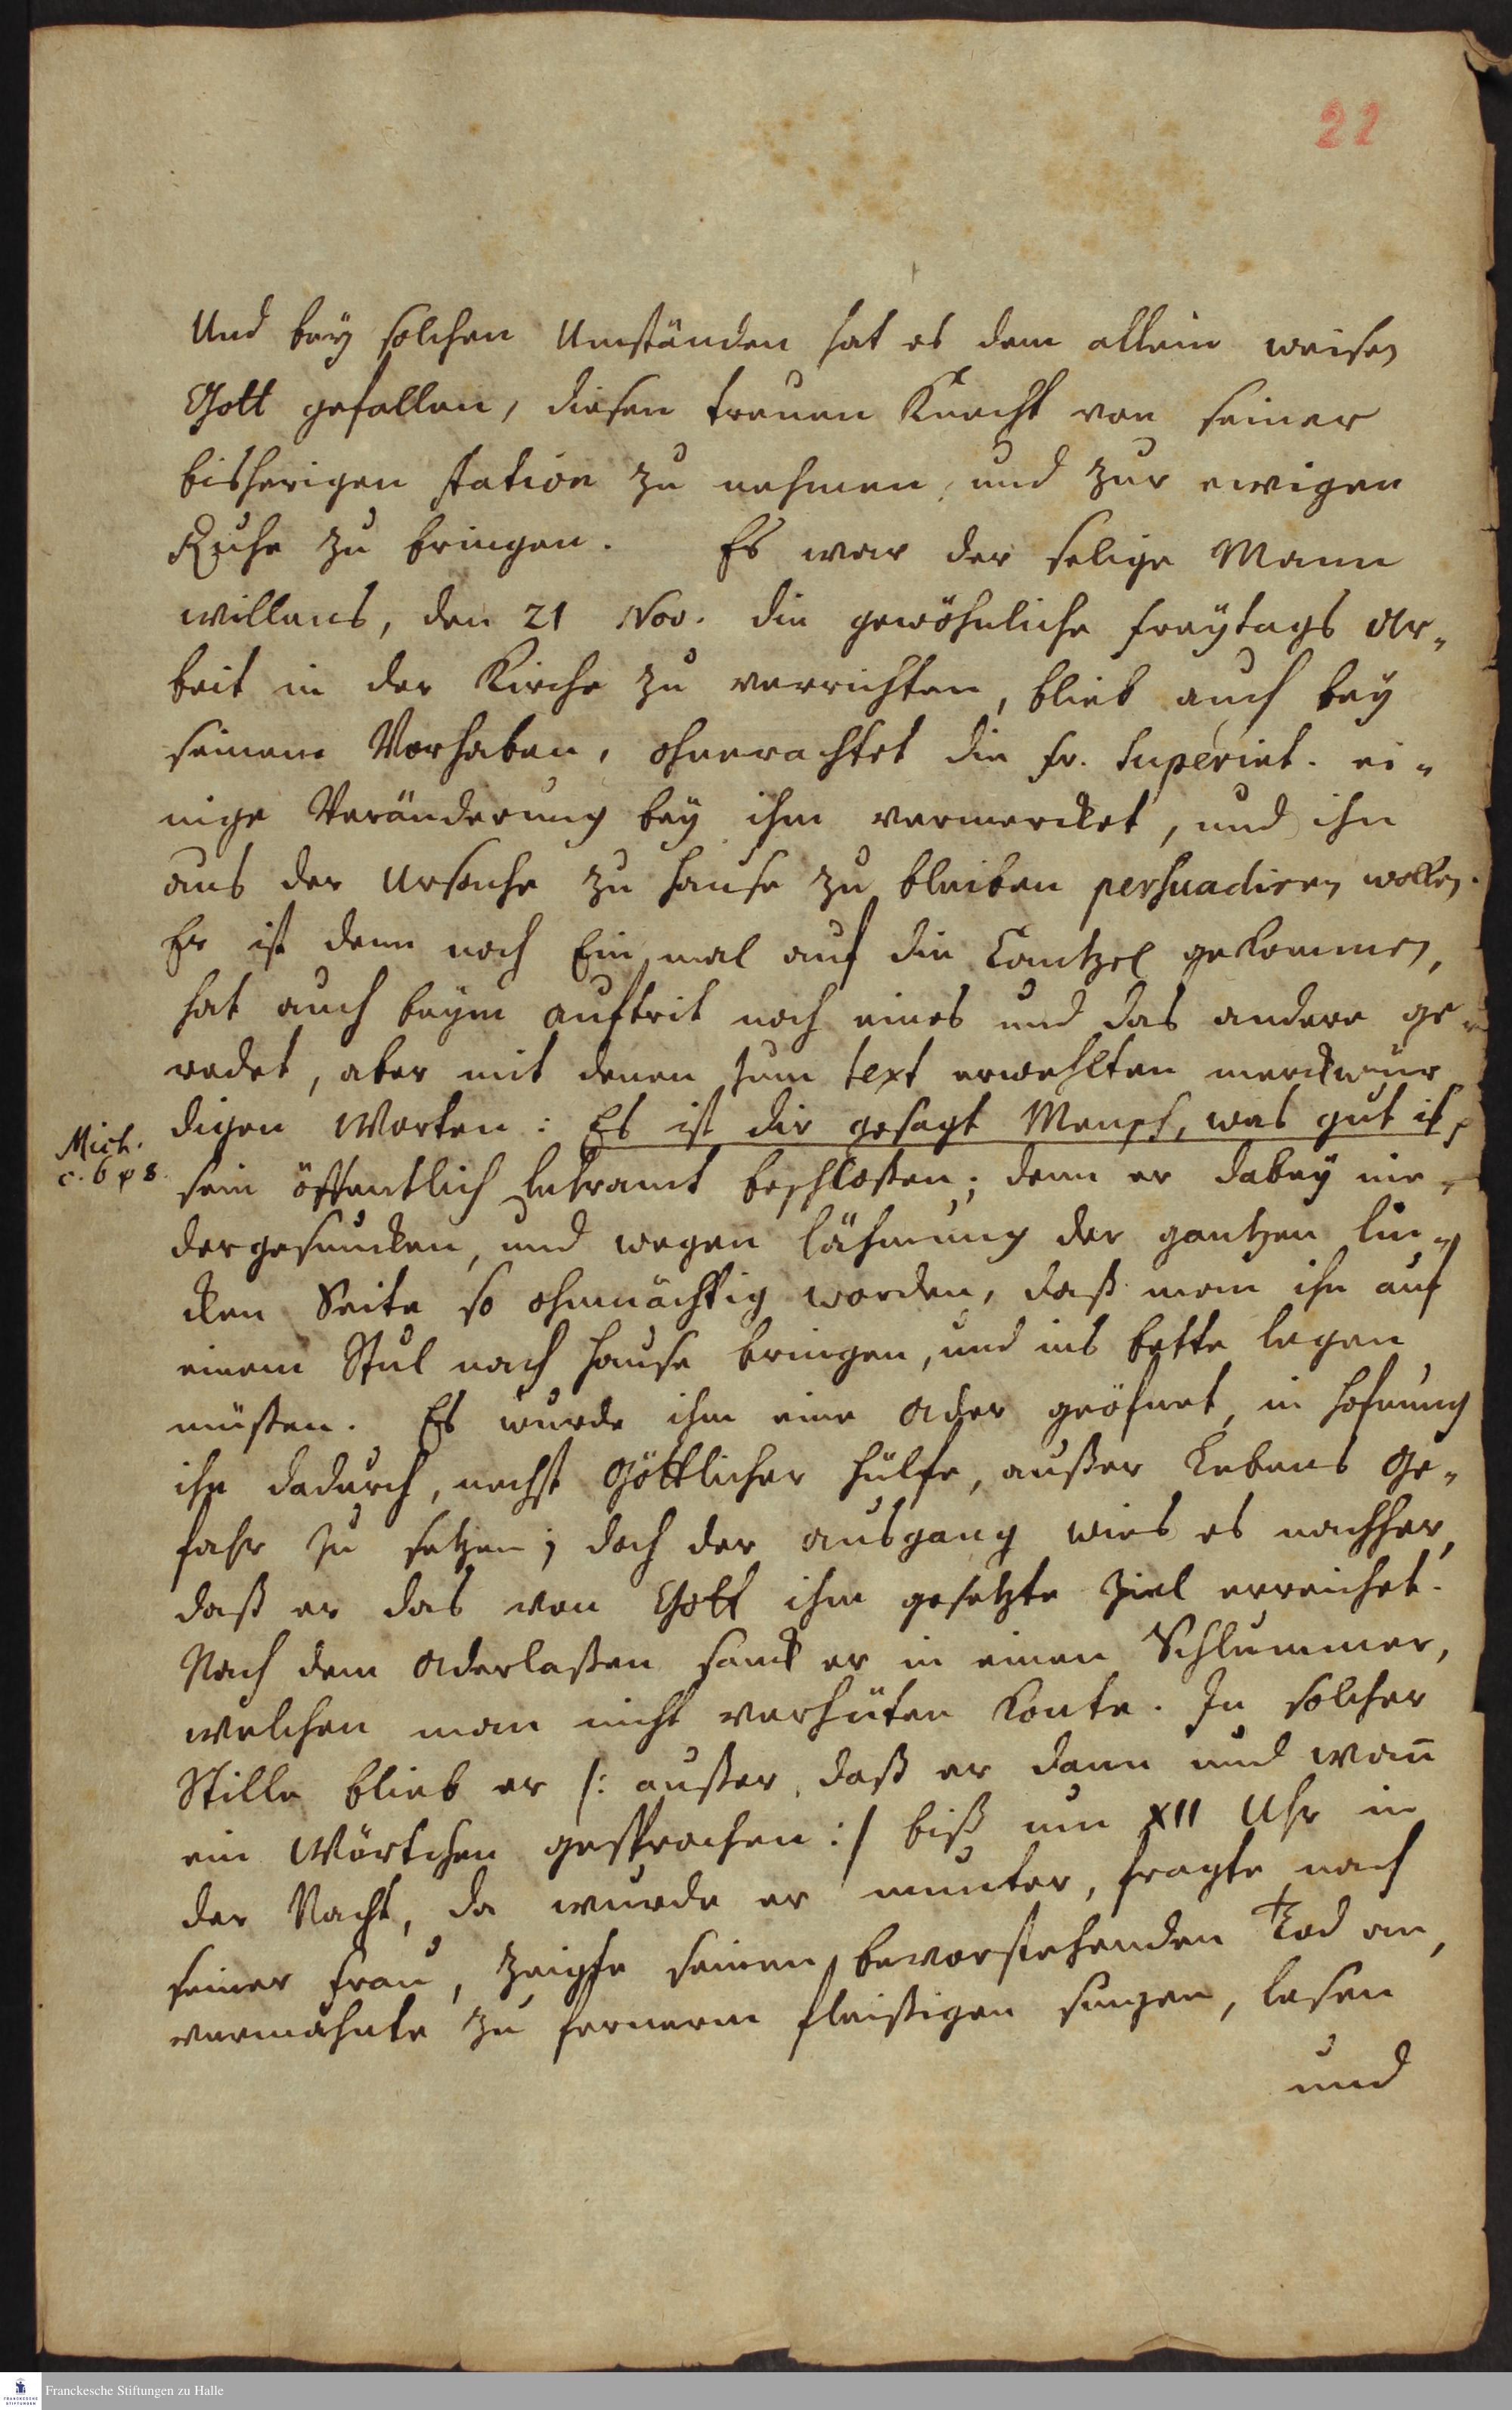 22
Und bey solchen Umständen hat es dem allein weisen
Gott gefallen, diesen treuen Knecht von seiner
bisherigen station zu nehmen, und zur ewigen
Ruhe zu bringen. Es war der selige Mann
willens, den 21 Nov. die gewöhnliche Freytags Ar-
beit in der Kirche zu verrichten, blieb auch bey
seinem Vorhaben, ohnerachtet die Fr. Superint. ei-
nige Veränderung bey ihm vermercket, und ihn
aus der Ursache zu Hause zu bleiben persuadiren wollen.
Er ist denn noch Ein mal auf die Cantzel gekommen,
hat auch beym auftrit noch eines und das andere ge-
redet, aber mit denen zum text erwehlten merckwür
digen Worten: Es ist dir gesagt Mensch, was gut ist
Mich.
c. 6 v 8.
sein öffentlich Lehramt beschloßen; denn er dabey nie-
dergesuncken, und wegen Lähmung der gantzen lin-
cken Seite so ohnmächtig worden, daß man ihn auf
einem Stul nach Hause bringen, und ins bette legen
müßen. Es wurde ihm eine Ader geöfnet, in Hofnung
ihn dadurch, nechst Göttlicher Hülfe, außer Lebens Ge-
fahr zu setzen; doch der ausgang wies es nachher,
daß er das von Gott ihm gesetzte Ziel erreichet.
Nach dem Aderlaßen sanck er in einen Schlummer,
welchen man nicht verhüten konte. In solcher
Stille blieb er /: außer, daß er dann und wan̄
ein Wörtchen gesprochen :/ biß um XII Uhr in
der Nacht, da wurde er munter, fragte nach
seiner Frau, zeigte seinen bevorstehenden Tod an,
vermahnte zu fernerm fleißigen singen, lesen
und
Franckesche Stiftungen zu Halle